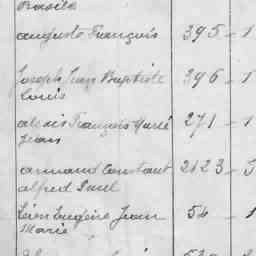 Basile
auguste François 395 - 1
Joseph Jean Baptiste 396 - 1
Louis
alexis François Marie 271 - 1
Jean
armand Constant 2123 -
alfred Paul
Léon Eugène Jean 54 - 1
Marie